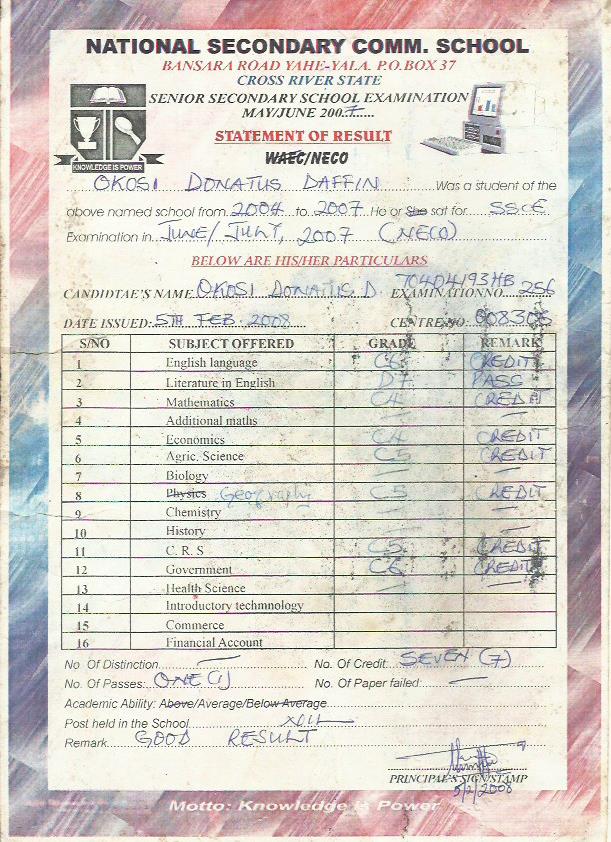 NATIONAL SECONDARY COMM. SCHOOL
BANSARA ROAD YAHE-YALA. P.O.BOX 37
CROSS RIVER STATE
SENIOR SECONDARY SCHOOL EXAMINATION
MAY/JUNE 2007
STATEMENT OF RESULT
WAEC/NECO
KNOWLEDGE IS POWER
OKOSI DONATUS DAFFIN Was a student of the
above named school from 2004 to 2007 He or She sat for SSCE
Examination in JUNE/JULY, 2007 (NECO)
BELOW ARE HIS/HER PARTICULARS
CANDIDTAE'S NAME OKOSI DONATUS D. EXAMINATION NO. 70404193HB 256
DATE ISSUED: 5TH FEB 2008 CENTRE NO 008306
S/NO SUBJECT OFFERED GRADE REMARK
1 English language C6 CREDIT
2 Literature in English D7 PASS
3 Mathematics C4 CREDIT
4 Additional maths — —
5 Economics C4 CREDIT
6 Agric. Science C5 CREDIT
7 Biology — —
8 Physics Geography C5 CREDIT
9 Chemistry — —
10 History — —
11 C. R. S C5 CREDIT
12 Government C6 CREDIT
13 Health Science — —
14 Introductory techmnology
15 Commerce
16 Financial Account
No. Of Distinction — No. Of Credit: SEVEN (7)
No. Of Passes: ONE (1) No. Of Paper failed: —
Academic Ability: Above/Average/Below Average
Post held in the School NIL
Remark GOOD RESULT
PRINCIPAL'S SIGN/STAMP
5/2/2008
Motto: Knowledge is Power